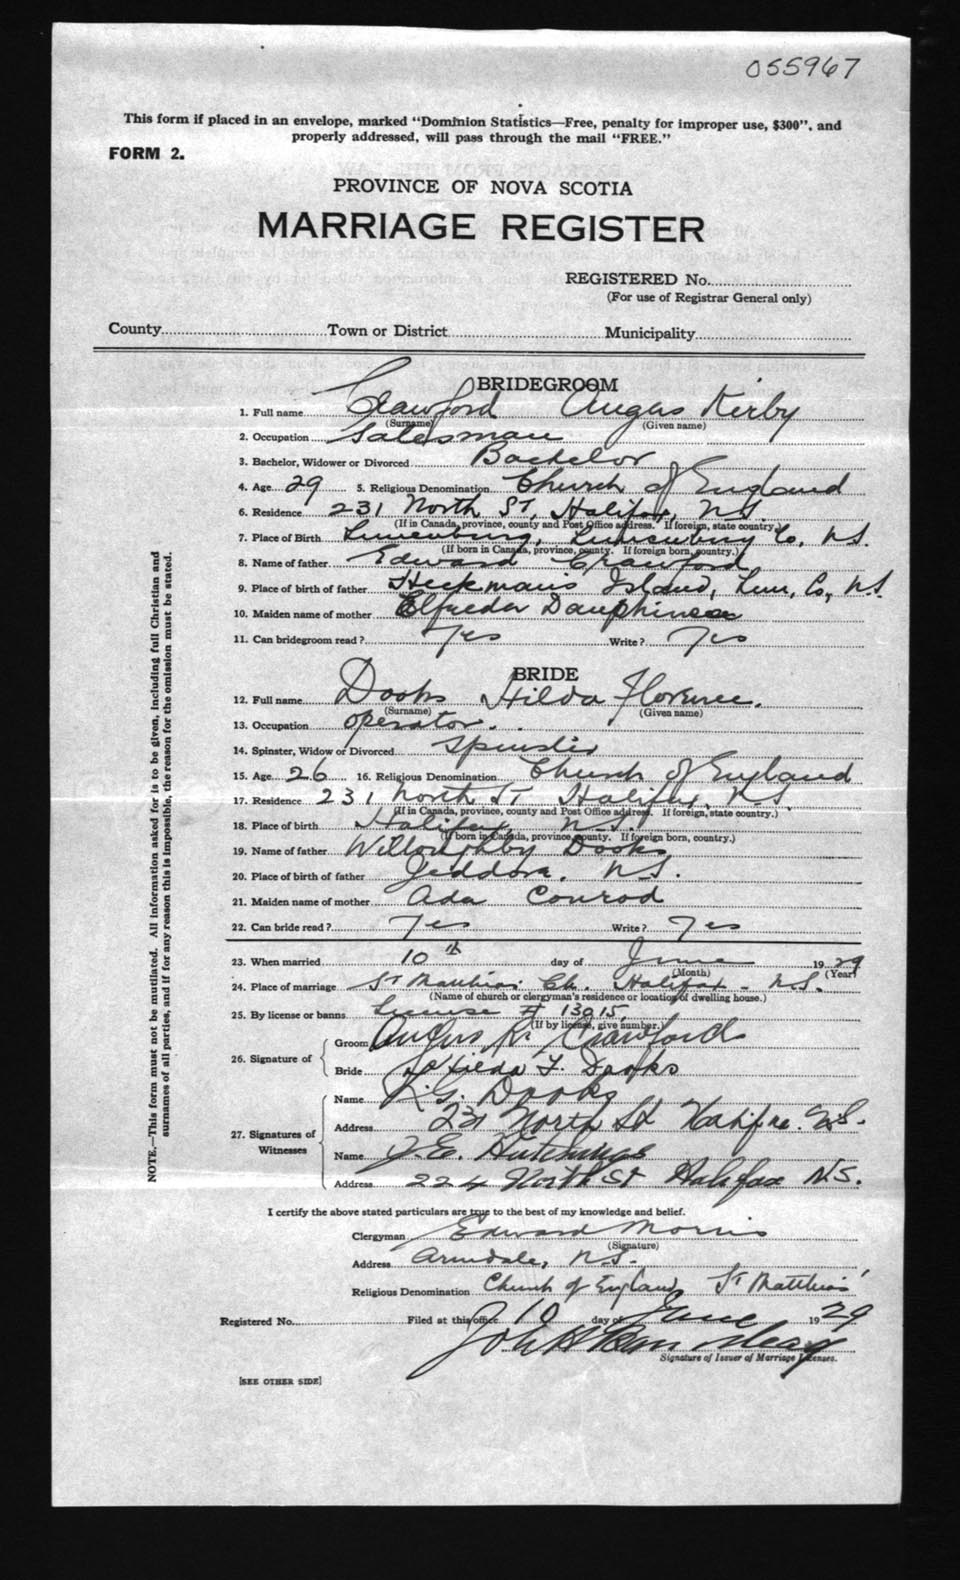 055967
This form if placed in an envelope, marked "Dominion Statistics—Free, penalty for improper use, $300", and
properly addressed, will pass through the mail "FREE."
FORM 2.
PROVINCE OF NOVA SCOTIA
MARRIAGE REGISTER
REGISTERED No.
(For use of Registrar General only)
County Town or District Municipality
BRIDEGROOM
1. Full name Crawford Angus Kirby
(Surname) (Given name)
2. Occupation Salesman
3. Bachelor, Widower or Divorced Bachelor
4. Age 29 5. Religious Denomination Church of England
6. Residence 231 North St, Halifax, N.S.
(If in Canada, province, county and Post Office address. If foreign, state country.)
7. Place of Birth Lunenburg, Lunenburg Co, N.S.
(If born in Canada, province, county. If foreign born, country.)
8. Name of father Edward Crawford
9. Place of birth of father Heckmans Island, Lun, Co, N.S.
10. Maiden name of mother Dauphinee
11. Can bridegroom read? Yes Write? Yes
BRIDE
12. Full name Dooks Hilda Florence.
(Surname) (Given name)
13. Occupation operator.
14. Spinster, Widow or Divorced Spinster
15. Age 26 16. Religious Denomination Church of England
17. Residence 231 North St Halifax, N.S
(If in Canada, province, county and Post Office address. If foreign, state country.)
18. Place of birth Halifax N.S.
(If born in Canada, province, county. If foreign born, country.)
19. Name of father Willoughby Dooks
20. Place of birth of father Jeddore, N.S.
21. Maiden name of mother Ada Conrod
22. Can bride read? Yes Write? Yes
23. When married 10th day of June 1929
(Month) (Year)
24. Place of marriage St Matthias Ch. Halifax - N.S.
(Name of church or clergyman's residence or location of dwelling house.)
25. By license or banns License # 13015
(If by license, give number.)
26. Signature of
Groom Angus K. Crawford
Bride Hilda F. Dooks
27. Signatures of Witnesses
Name R.G. Dooks
Address 231 North St Halifax. N.S.
Name J.E. Hutchings
Address 224 North St Halifax N.S.
I certify the above stated particulars are true to the best of my knowledge and belief.
Clergyman Edward Morris
(Signature)
Address Armdale, N.S.
Religious Denomination Church of England St Matthias'
Registered No. Filed at this office 10 day of June 1929
Signature of Issuer of Marriage Licenses.
[SEE OTHER SIDE]
NOTE.—This form must not be mutilated. All information asked for is to be given, including full Christian and
surnames of all parties, and if for any reason this is impossible, the reason for the omission must be stated.